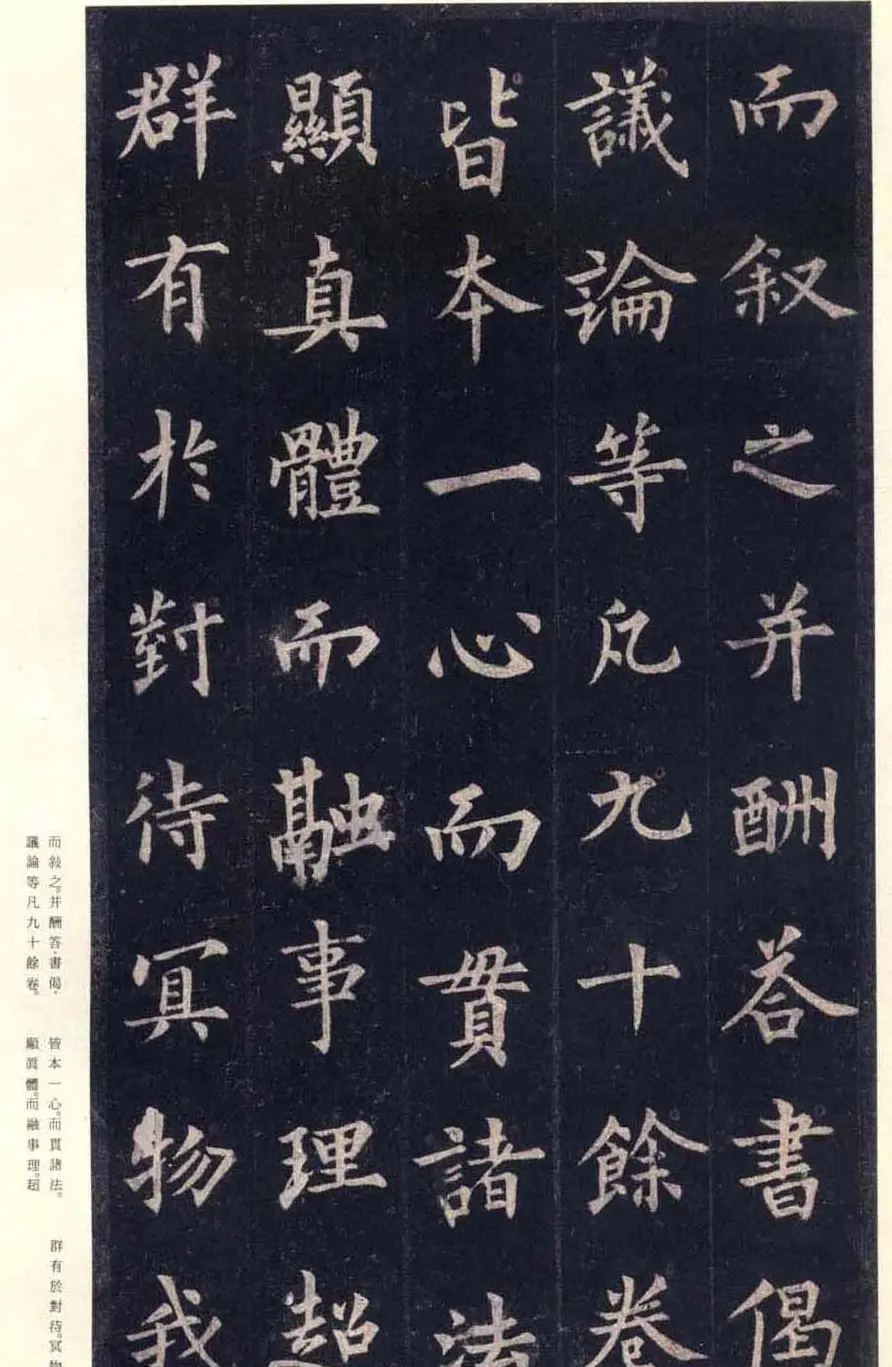 而叙之并酬荅書偈
議論等凡九十餘卷
皆本一心而貫諸法
顯真體而融事理超
群有於對待冥物我
而敍之。并酬答、書偈、
議論等凡九十餘卷。
皆本一心。而貫諸法。
顯眞體。而融事理。超
群有於對待。冥物